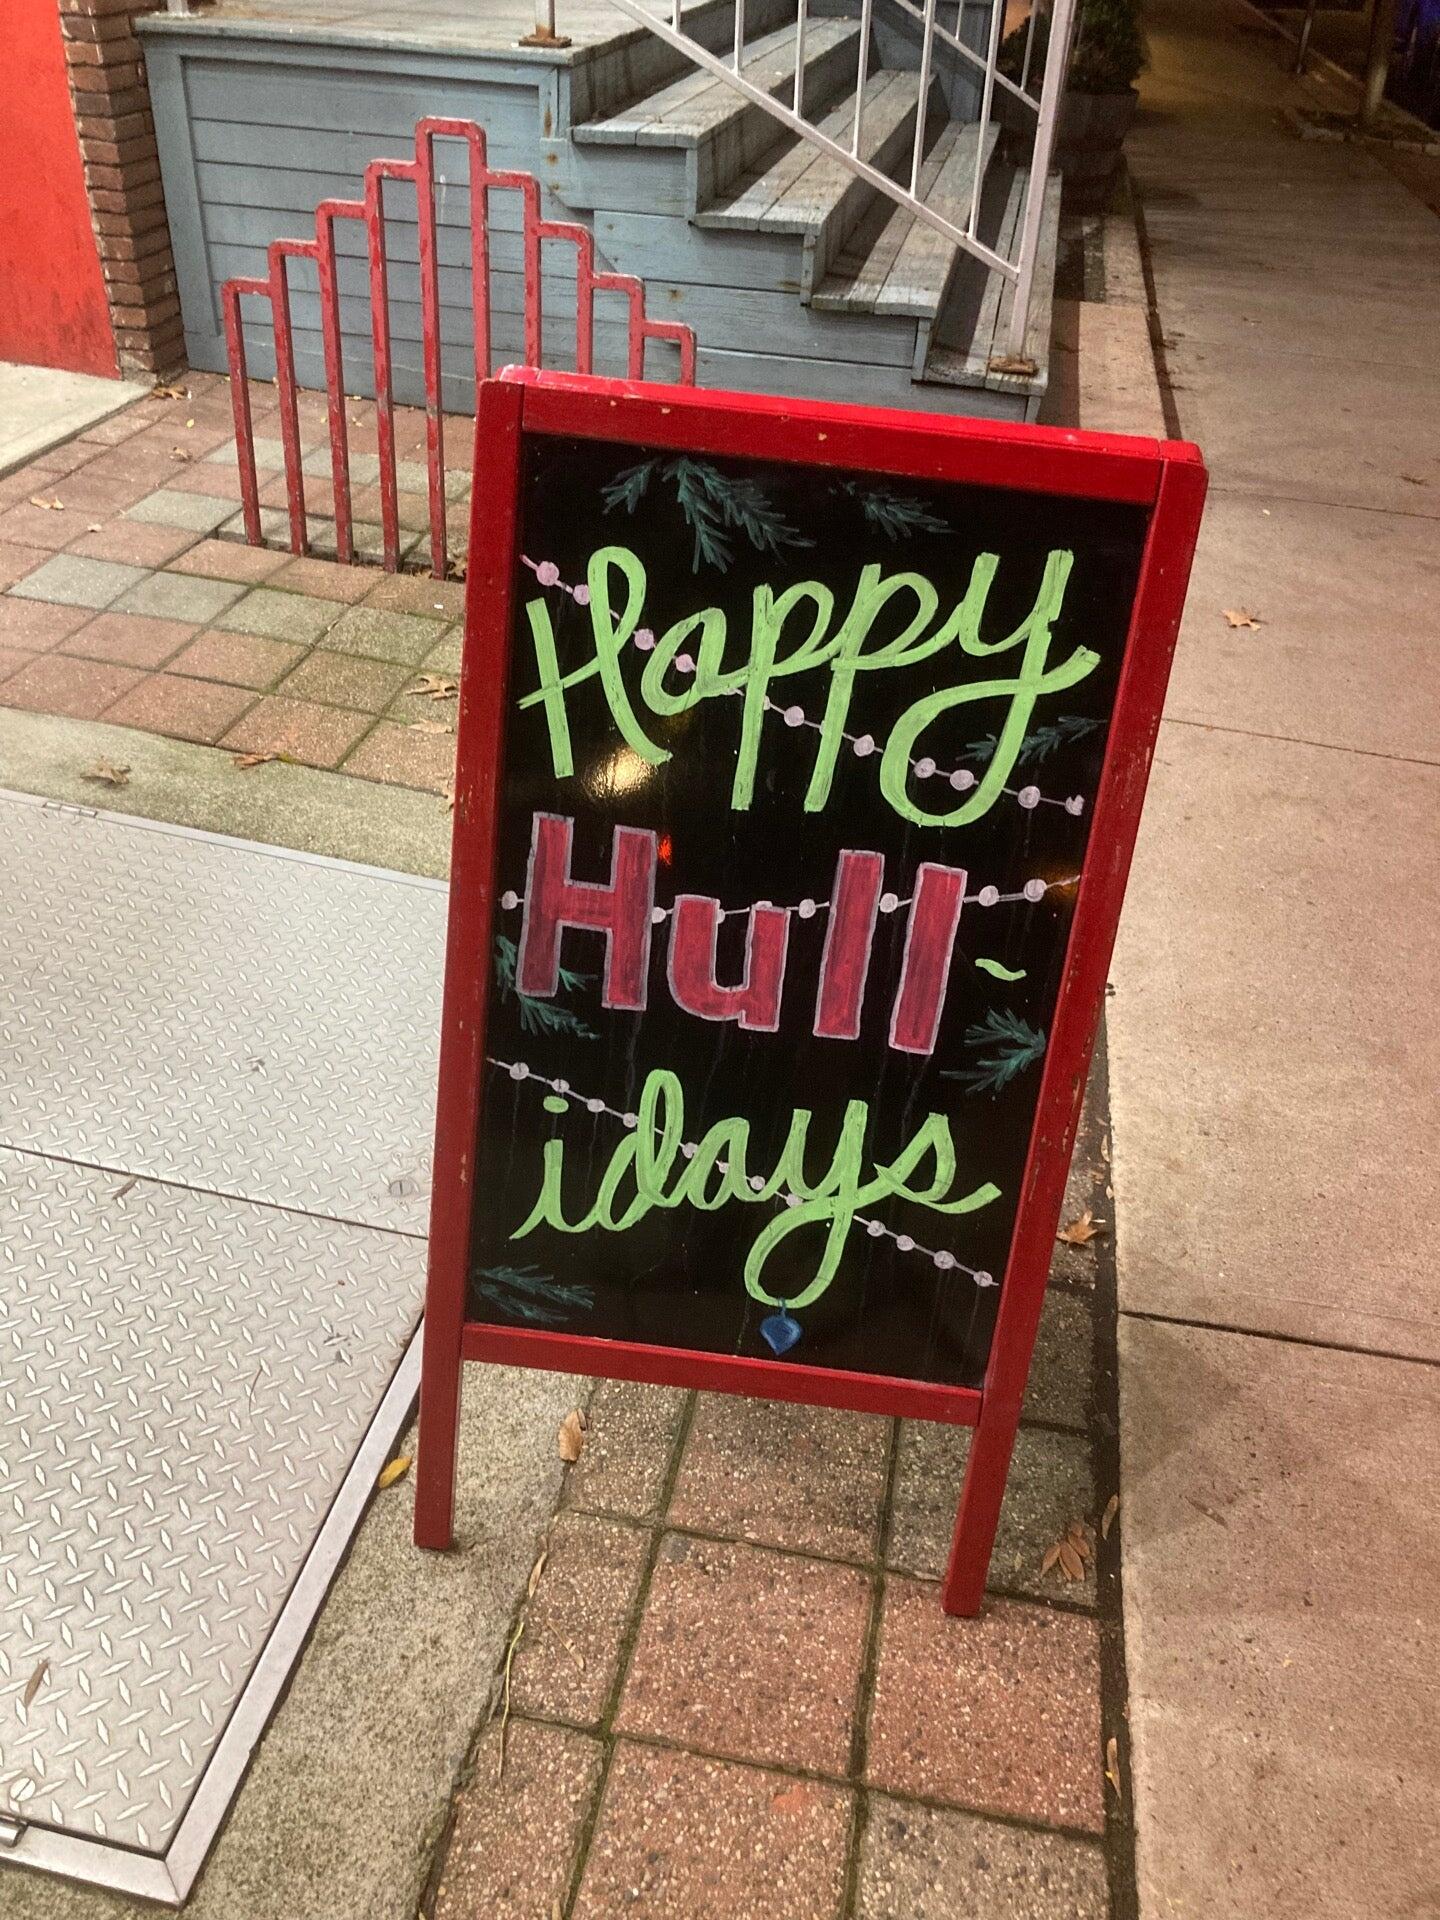 Happy
Hull-
idays